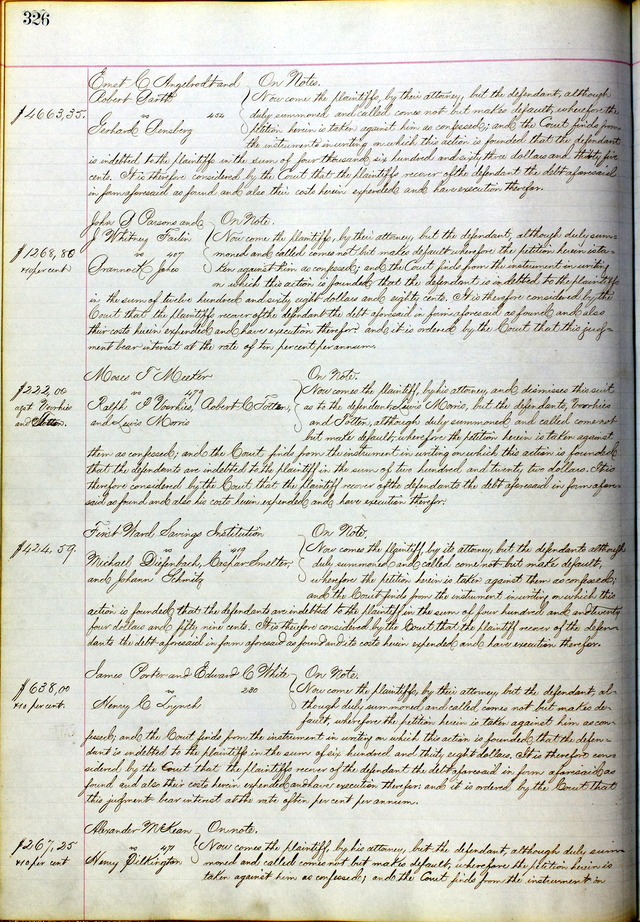 326
Ernst C. Angelrodt and } On Note.
Robert Barth Now come the plaintiffs, by their attorney, but the defendant, although
$4663,35. vs 454 duly summoned and called comes not but makes default, wherefore the
Gerhard Aensberg petition herein is taken against him as confessed; and the Court finds from
the instruments in writing on which this action is founded that the defendant
is indebted to the plaintiffs in the sum of four thousand six hundred and sixty three dollars and thirty five
cents. It is therefore considered by the Court that the plaintiffs recover of the defendant the debt aforesaid
in form aforesaid as found and also their costs herein expended and have execution therefor.
John G Parsons and } On Note.
J Whitney Farlin Now come the plaintiffs, by their attorney, but the defendant, although duly sum-
$1268,80 vs 407 moned and called comes not but makes default wherefore the petition herein is ta-
&10 per cent Brannock Jones ken against him as confessed; and the Court finds from the instrument in writing
on which this action is founded, that the defendant is indebted to the plaintiffs
in the sum of twelve hundred and sixty eight dollars and eighty cents. It is therefore considered by the
Court that the plaintiffs recover of the defendant the debt aforesaid in form aforesaid as found and also
their costs herein expended and have execution therefor: and it is ordered by the Court that this judg-
ment bear interest at the rate of ten per cent per annum.
Moses T Meeker } On Note.
$222,00 vs 471 Now comes the plaintiff, by his attorney, and dismisses this suit
agst Voorhies Ralph P Voorhies, Robert C Totten, as to the defendant, Lewis Morris, but the defendants, Voorhies
and Totten. and Lewis Morris and Totten, although duly summoned and called come not
but make default; wherefore the petition herein is taken against
them as confessed; and the Court finds from the instrument in writing on which this action is founded
that the defendants are indebted to the plaintiff in the sum of two hundred and twenty two dollars. It is
therefore considered by the Court that the plaintiff recover of the defendants the debt aforesaid in form afore-
said as found and also his costs herein expended and have execution therefor.
First Ward Savings Institution } On Note.
$424,59. vs 419 Now comes the plaintiff, by its attorney, but the defendants although
Michael Diefenbach, Caspar Smelter, duly summoned and called come not but make default,
and Johann Schmitz wherefore the petition herein is taken against them as confessed;
and the Court finds from the instrument in writing on which this
action is founded, that the defendants are indebted to the plaintiff in the sum of four hundred and twenty
four dollars and fifty nine cents. It is therefore considered by the Court that the plaintiff recover of the defen-
dants the debt aforesaid in form aforesaid as found and its costs herein expended and have execution therefor.
James Porter and Edward C White } On Note.
$638,00 vs 280 Now come the plaintiffs, by their attorney, but the defendant, al-
&10 per cent. Henry C Lynch though duly summoned and called, comes not but makes de-
fault, wherefore the petition herein is taken against him as con-
fessed; and the Court finds from the instrument in writing on which this action is founded, that the defen-
dant is indebted to the plaintiffs in the sum of six hundred and thirty eight dollars. It is therefore con-
sidered by the Court that the plaintiffs recover of the defendant the debt aforesaid in form aforesaid as
found and also their costs herein expended and have execution therefor: and it is ordered by the Court that
this judgment bear interest at the rate of ten per cent per annum.
Alexander McKean } On note.
$267,25 vs 471 Now comes the plaintiff, by his attorney, but the defendant, although duly sum-
&10 per cent Henry Pilkington moned and called comes not but makes default, wherefore the petition herein is
taken against him as confessed; and the Court finds from the instrument in